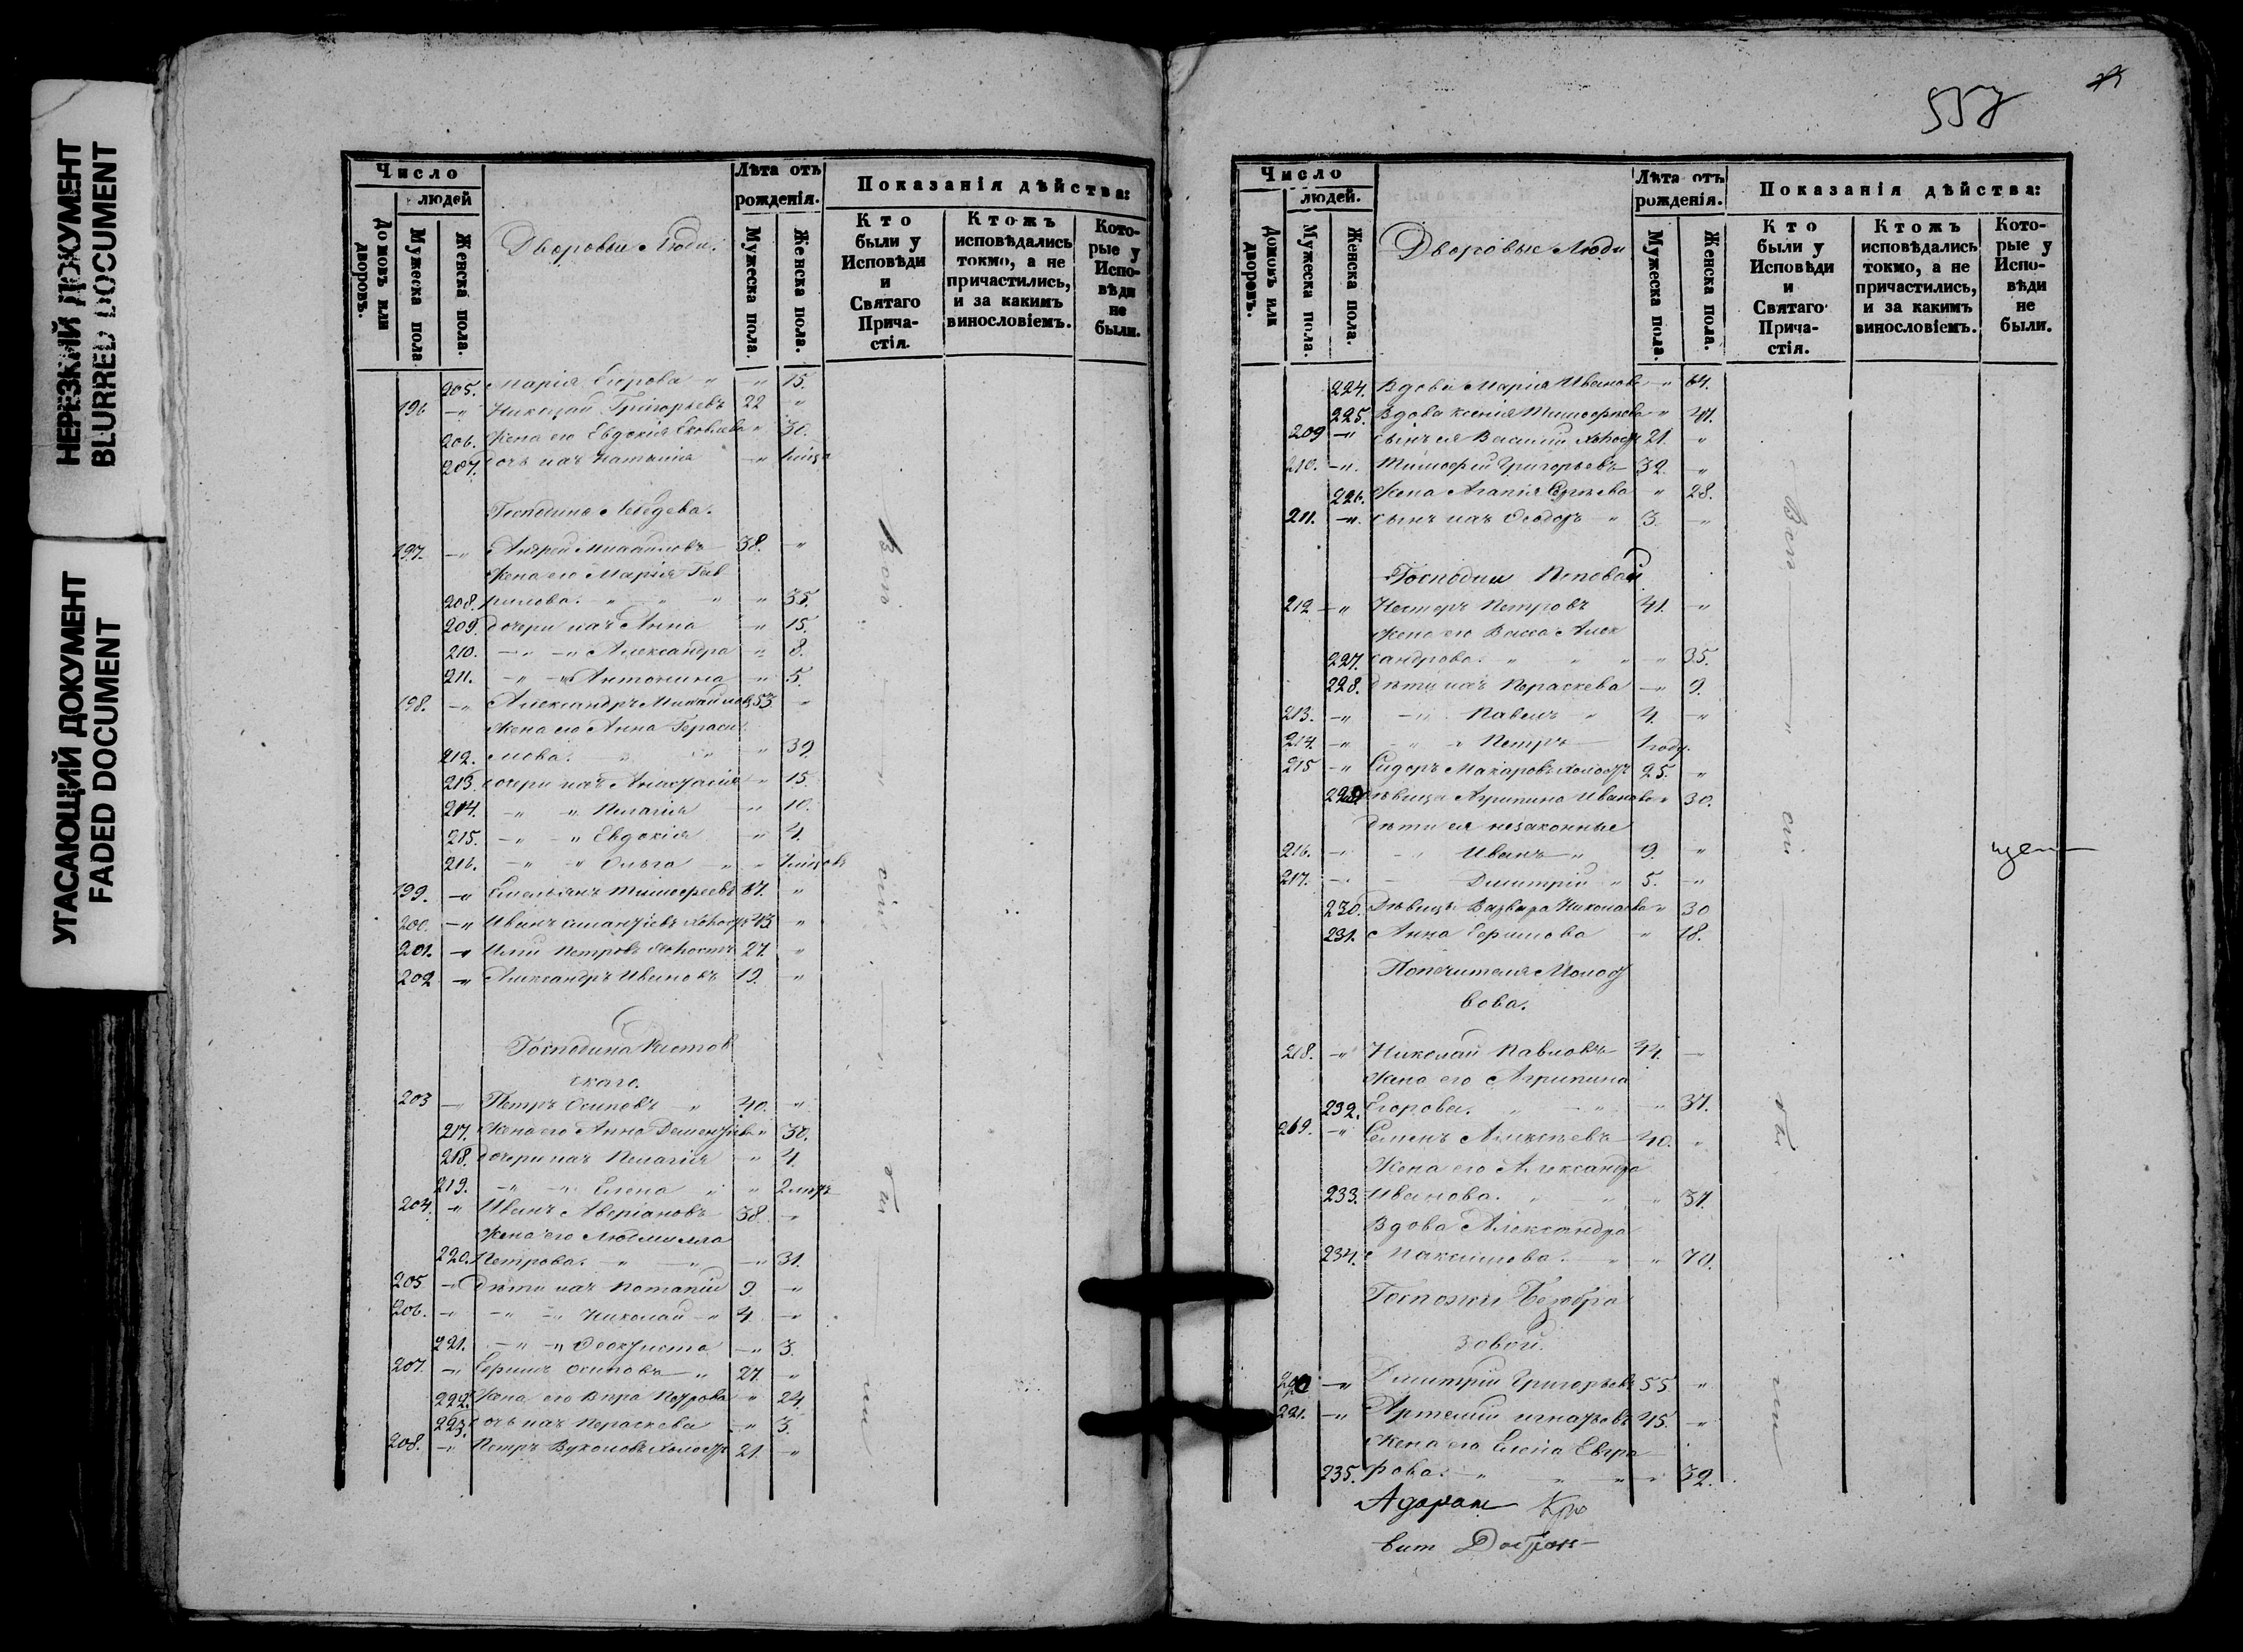 НЕРЕЗКИЙ ДОКУМЕНТ
BLURRED DOCUMENT
УГАСАЮЩИЙ ДОКУМЕНТ
FADED DOCUMENT
Число
людей
Домовъ или дворовъ.
Мужеска пола
Женска пола.
Дворовыи Люди.
Лѣта отъ рожденія.
Мужеска пола.
Женска пола.
Показанія дѣйства:
Кто были у Исповѣди и Святаго Причастія.
Ктожъ исповѣдались токмо, а не причастились, и за какимъ винословіемъ.
Которые у Исповѣди не были.
205. Марія Егорова " " 15.
196 " Николай Григорьевъ 22 "
206. Жена его Евдокія Яковлева " 30.
207. дочь ихъ Наталия "
Господина Лебедева.
197. " Андрей Михайловъ 38. "
Жена его Марія Гав
208. рилова. " " " " 35.
209. дочери ихъ Анна " 15.
210. " " Александра " 8.
211. " " Антонина " 5.
198. " Александръ Михайловъ 53 "
Жена его Анна Гераси
212. мова. " " " 39.
213. дочери ихъ Анастасія " 15.
214. " " Пелагія " 10.
215. " " Евдокія " 4.
216. " " Ольга " "
199. " Емельянъ Тимофеевъ 67. "
200. " Иванъ 43. "
201. " Петровъ Холостъ 27. "
202 " Александръ Ивановъ 19. "
Господина
скаго.
203 " Петръ Осиповъ " 40. "
217. Жена его Анна " 30.
218. дочери ихъ Пелагія " 4.
219. " " Елена " "
204. " Иванъ Аверіановъ 38. "
Жена его Людмилла
220. Петрова. " " " 31.
205 " Дѣти ихъ Потапій 9. "
206. " " " Николай " 4. "
221. " " Феоктиста " 3.
207. " Ефимъ Осиповъ " 27. "
222. Жена его Вѣра Петрова " 24.
223. дочь ихъ Параскева " 3.
208. " Петръ Вуколовъ Холостъ 21. "
557
Число
людей.
Домовъ или дворовъ.
Мужеска пола.
Женска пола.
Дворовые Люди
Лѣта отъ рожденія.
Мужеска пола.
Женска пола.
Показанія дѣйства:
Кто были у Исповѣди и Святаго Причастія.
Ктожъ исповѣдались токмо, а не причастились, и за какимъ винословіемъ.
Которые у Исповѣди не были.
224. Вдова Марія Иванова " 64.
225. Вдова Ксенія Тимофеева "
209 " сынъ ея Василій Холостъ 21. "
210. " Тимофей Григорьевъ 32. "
226. Жена Агапія " 28.
211. " сынъ ихъ Феодоръ " 3. "
Господии Поповой
212 " Несторъ Петровъ 41. "
Жена его Васса Алек
227. сандрова. " " " " 35.
228. Дѣти ихъ Параскева " 9.
213. " " Павелъ " 4. "
214. " " " Петръ 1 году.
215 " Сидоръ Макаровъ Холостъ 25. "
229 Дѣвица Агрипина Иванова " 30.
Дѣти ея незаконные
216. " " Иванъ " 9. "
217. " Димитрій " 5. "
230. Дѣвица Варвара Николаева " 30
231. Анна Ефимова " 18.
Попечителя Молост
вова.
218. " Николай Павловъ 44. "
Жена его Агрипина
232. Егорова. " " " 37.
219. " Семенъ Алексѣевъ 40. "
Жена его Александра
233. Иванова. " " " 37.
Вдова Александра
234. Максимова. " " 70.
Госпожи Безобра
зовой.
220 " Димитрій Григорьевъ 55. "
221. " Артемій Игнатьевъ 45. "
Жена его Елена Евгра
235. фова. " " " " 32.